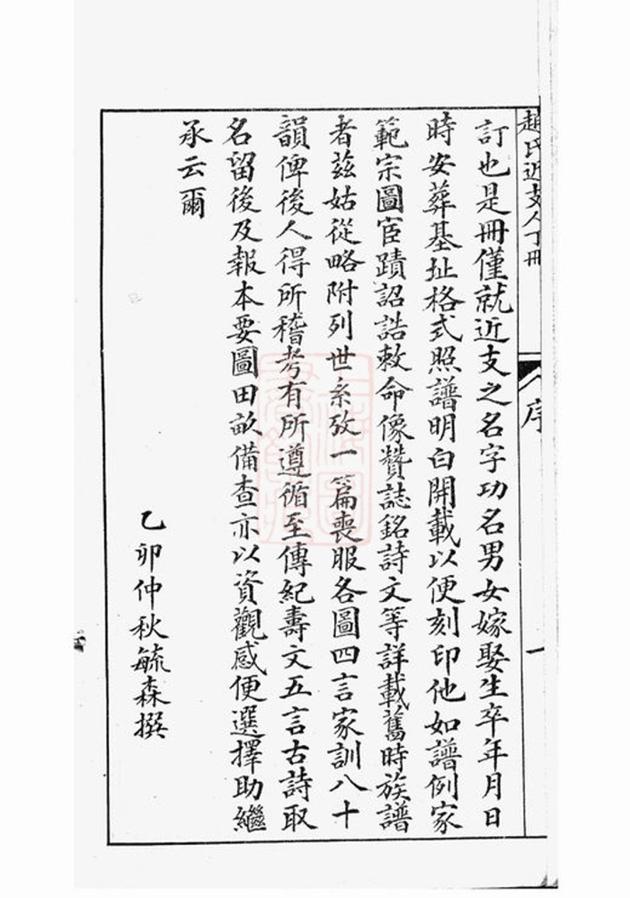 趙氏近支人丁冊
序
一
訂也是冊僅就近支之名字功名男女嫁娶生卒年月日
時安葬基址格式照譜明白開載以便刻印他如譜例家
範宗圖宦蹟詔誥敕命像贊誌銘詩文等詳載舊時族譜
者茲姑從略附列世系攷一篇喪服各圖四言家訓八十
韻俾後人得所稽考有所遵循至傳紀壽文五言古詩取
名留後及報本要圖田畝備查亦以資觀感便選擇助繼
承云爾
乙卯仲秋毓森撰